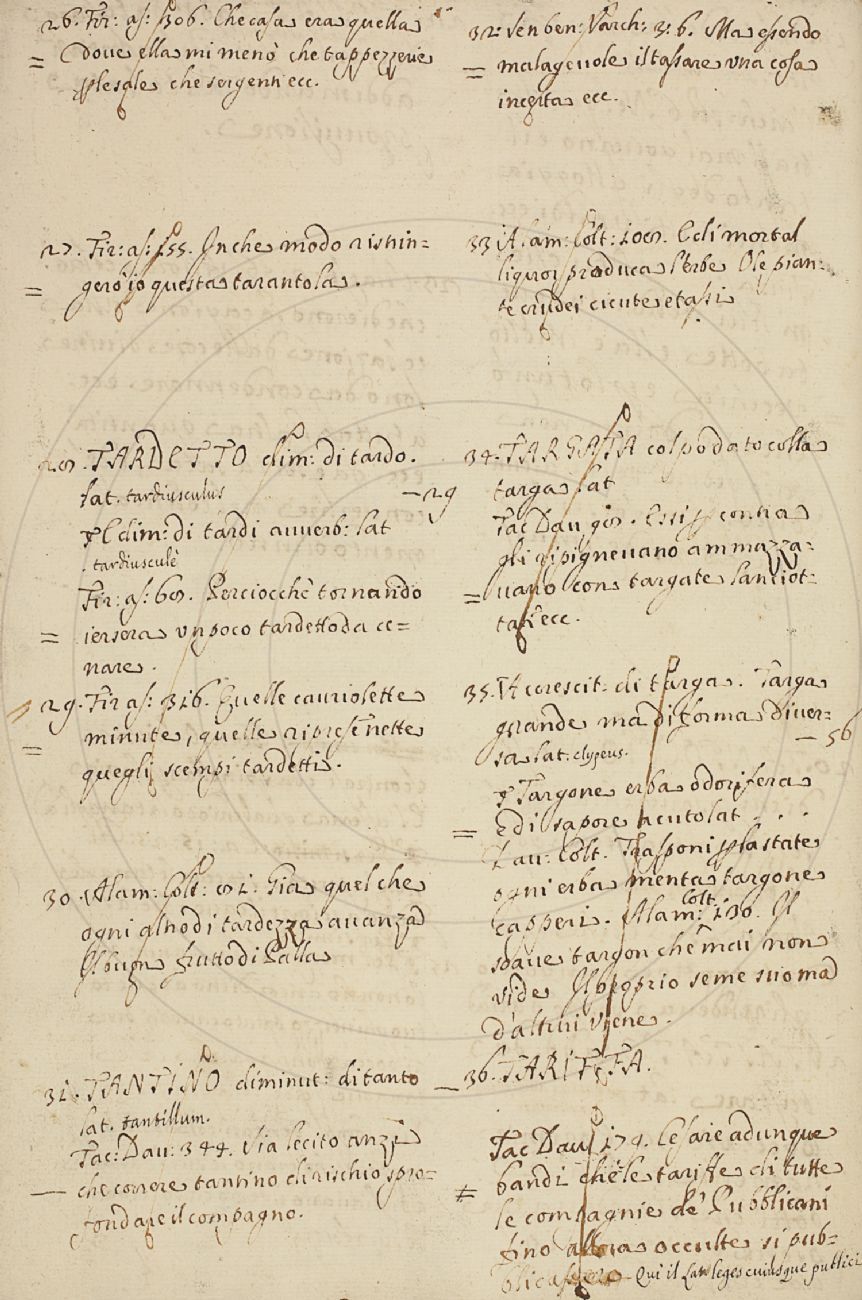 26. Fir: as: 306. Che casa era quella
dove ella mi menò che tappezzerie
ple sale che sergenti ecc.
27. Fir: as: 155. In che modo ristrin=
gerò io questa tarantola.
28. TARDETTO dim: di tardo.
lat. tardiusculus
E dim: di tardi avverb: lat
tardiusculè
Fir: as: 68. Perciocchè tornando
iersera un poco tardetto da ce=
nare.
29. Fir as: 316. Quelle cauriolette
minute, quelle ripresenette
quegli scempi tardetti.
30. Alam: Colt: 81. Gia quel che
ogni altro di tardezza avanza
Il buon frutto di Palla
31. TANTINO diminut: di tanto
lat. tantillum.
Tac: Dav: 344. Via lecito anzi
che correre tantino di rischio spro=
fondare il compagno.
32. Sen ben: Varch: 3: 6. Ma essendo
malagevole il tassare una cosa
incerta ecc.
33 Alam: Colt: 108. E di mortal
liquor produca l'erbe O le pian=
te crudei cicute e tassi
34. TARGATA colpo dato colla
targa lat
— 29
Tac Dav 98. Essi p contra
gli rispignevano ammazza=
vano con targate lanciot=
tate ecc.
35. Accrescit: di targa. Targa
grande ma di forma diver=
sa lat: clypeus. — 56
Targone erba odorifera
E di sapore acuto lat . . .
Dav: Colt. Trasponi pla state
ogni erba menta targone
capperi. Alam: Colt 130. Il
soave targon che mai non
vide Il proprio seme suo ma
d'altrui viene.
36. TARIFFA.
Tac Dav 174. Cesare adunque
bandì che le tariffe di tutte
le compagnie de' Pubblicani
fino allora occulte si pub=
blicassero Qui il Lat leges cuiusque publici